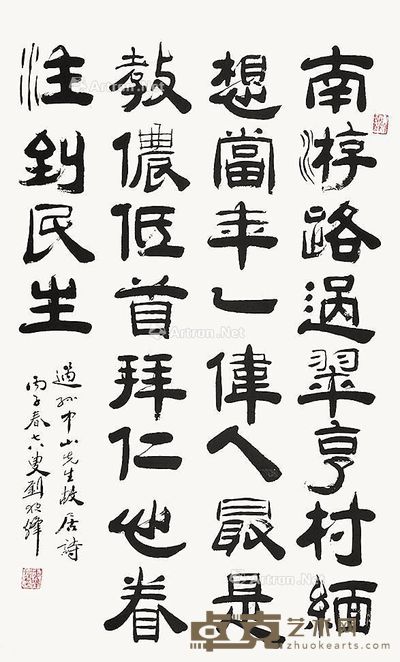 南游路過翠亨村緬
想當年一偉人最是
教儂低首拜仁心眷
注到民生
過孫中山先生故居詩
丙子春 叟劉
Artron.Net
Artron.Net
Artron.Net
Artron.Net
艺术网
zhuokearts.com